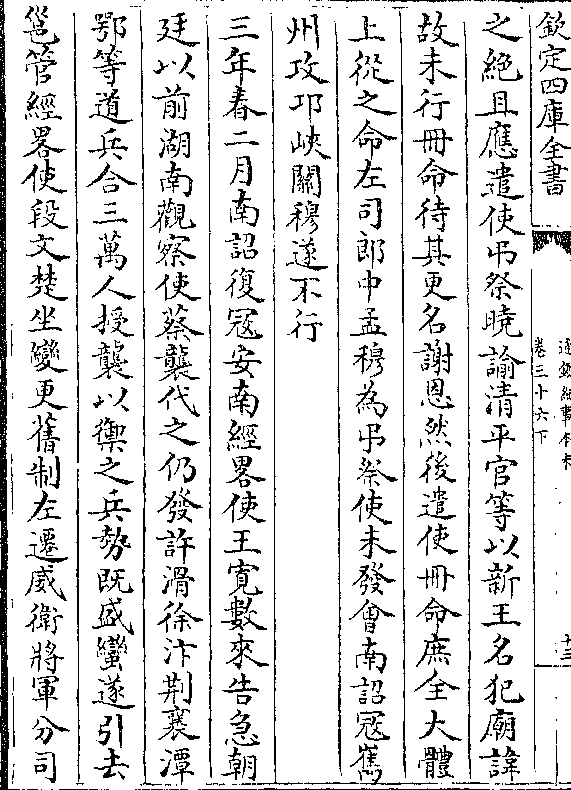 欽定四庫全書
通鑑紀事本末
卷三十六下
十三
之絶且應遣使弔祭曉諭清平官等以新王名犯廟諱
故未行冊命待其更名謝恩然後遣使冊命庶全大體
上從之命左司郎中孟穆為弔祭使未發會南詔冦嶲
州攻邛峽關穆遂不行
三年春二月南詔復冦安南經畧使王寛數來告急朝
廷以前湖南觀察使蔡襲代之仍發許滑徐汴荆襄潭
鄂等道兵合三萬人授襲以禦之兵勢既盛蠻遂引去
邕管經畧使段文楚坐變更舊制左遷威衛將軍分司